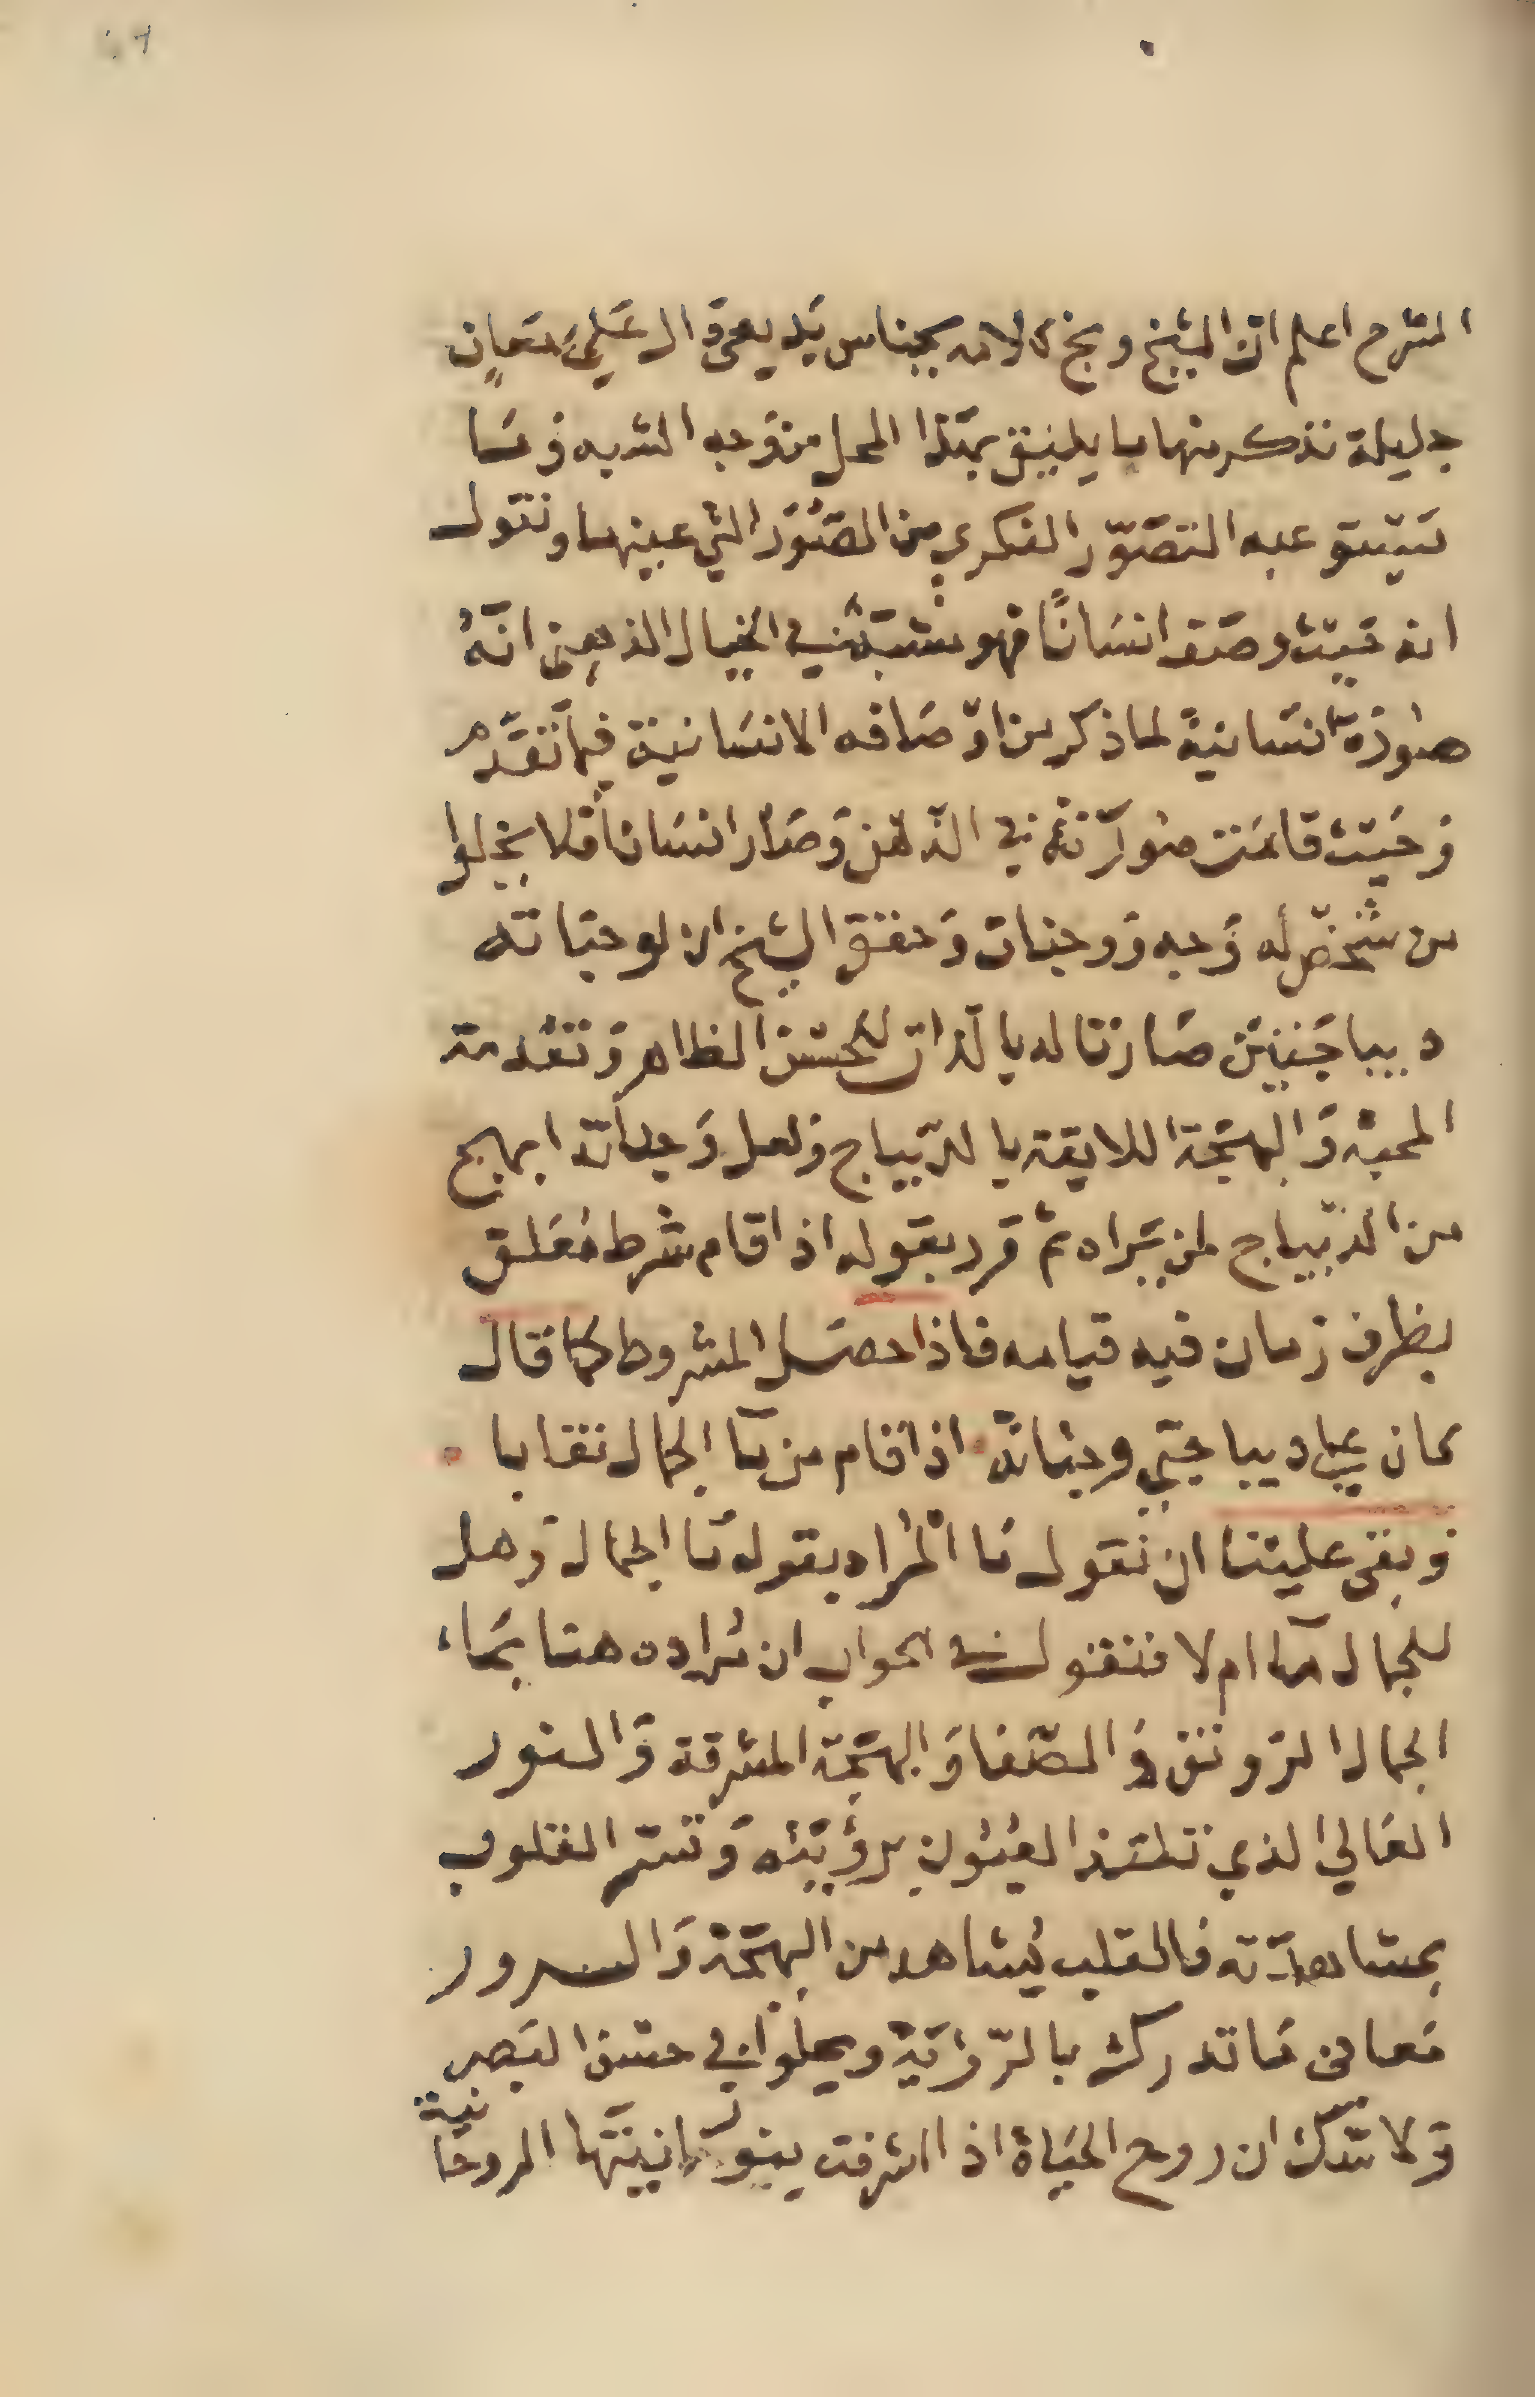 الشرح اعلم ان الشيخ وبخ كلامه بجناس بديعي دال على معان
جليلة نذكر منها ما يليق بهذا المحل من وجه الشبه وما
يتيسر عبه التصور الفكري من الصور التي عينها ونقول
انه حيث وصف انسانًا فهو مشبه في الخيال الذهني انه
صورة انسانية لما ذكر من اوصافه الانسانية فيما تقدم
وحيث قامت صورته في الذهن وصار انسانا فلا يخلوا
من شخص له وجه ووجنات وحقق الشيخ ان لوجناته
ديباجتين صارتا له بالذات للحسن الظاهر وتقدمة
المحبة والبهجة اللايقة بالديباج ولعل وجناته ابهج
من الديباج لمن يراه ثم قرر بقوله اذا قام شرط معلق
بظرف زمان فيه قيامه فاذا حصل المشروط كما قال
كان على ديباجتي وجناته اذا قام من ما الجمال نقابا
وبقى علينا ان نقول ما المراد بقوله ما الجمال وهل
للجمال ما ام لا فنقول في الجواب ان مراده هنا بماء
الجمال الرونق والصفا والبهجة المشرقة والنور
العالي الذي تلتذ العيون برؤيته وتسر القلوب
بمشاهدته فالقلب يشاهد من البهجة والسرور
معاني ما تدركه بالرؤية ويحلوا في حسن البصر
ولا شك ان روح الحياة اذا اشرقت بنورانيتها الروحانية